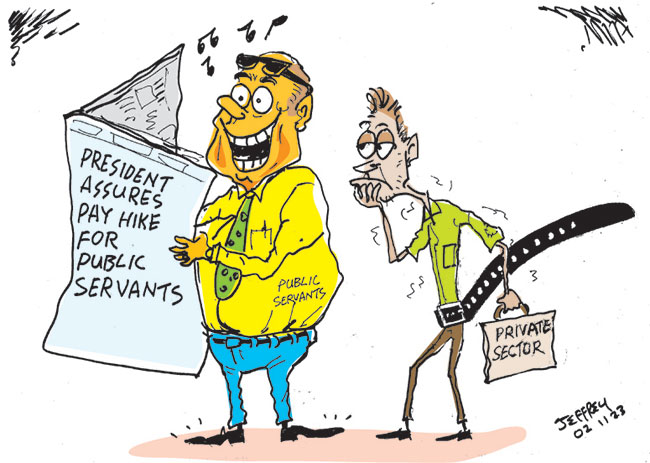 PRESIDENT
ASSURES
PAY HIKE
FOR
PUBLIC
SERVANTS
PUBLIC
SERVANTS
PRIVATE
SECTOR
JEFFREY
02 11 23